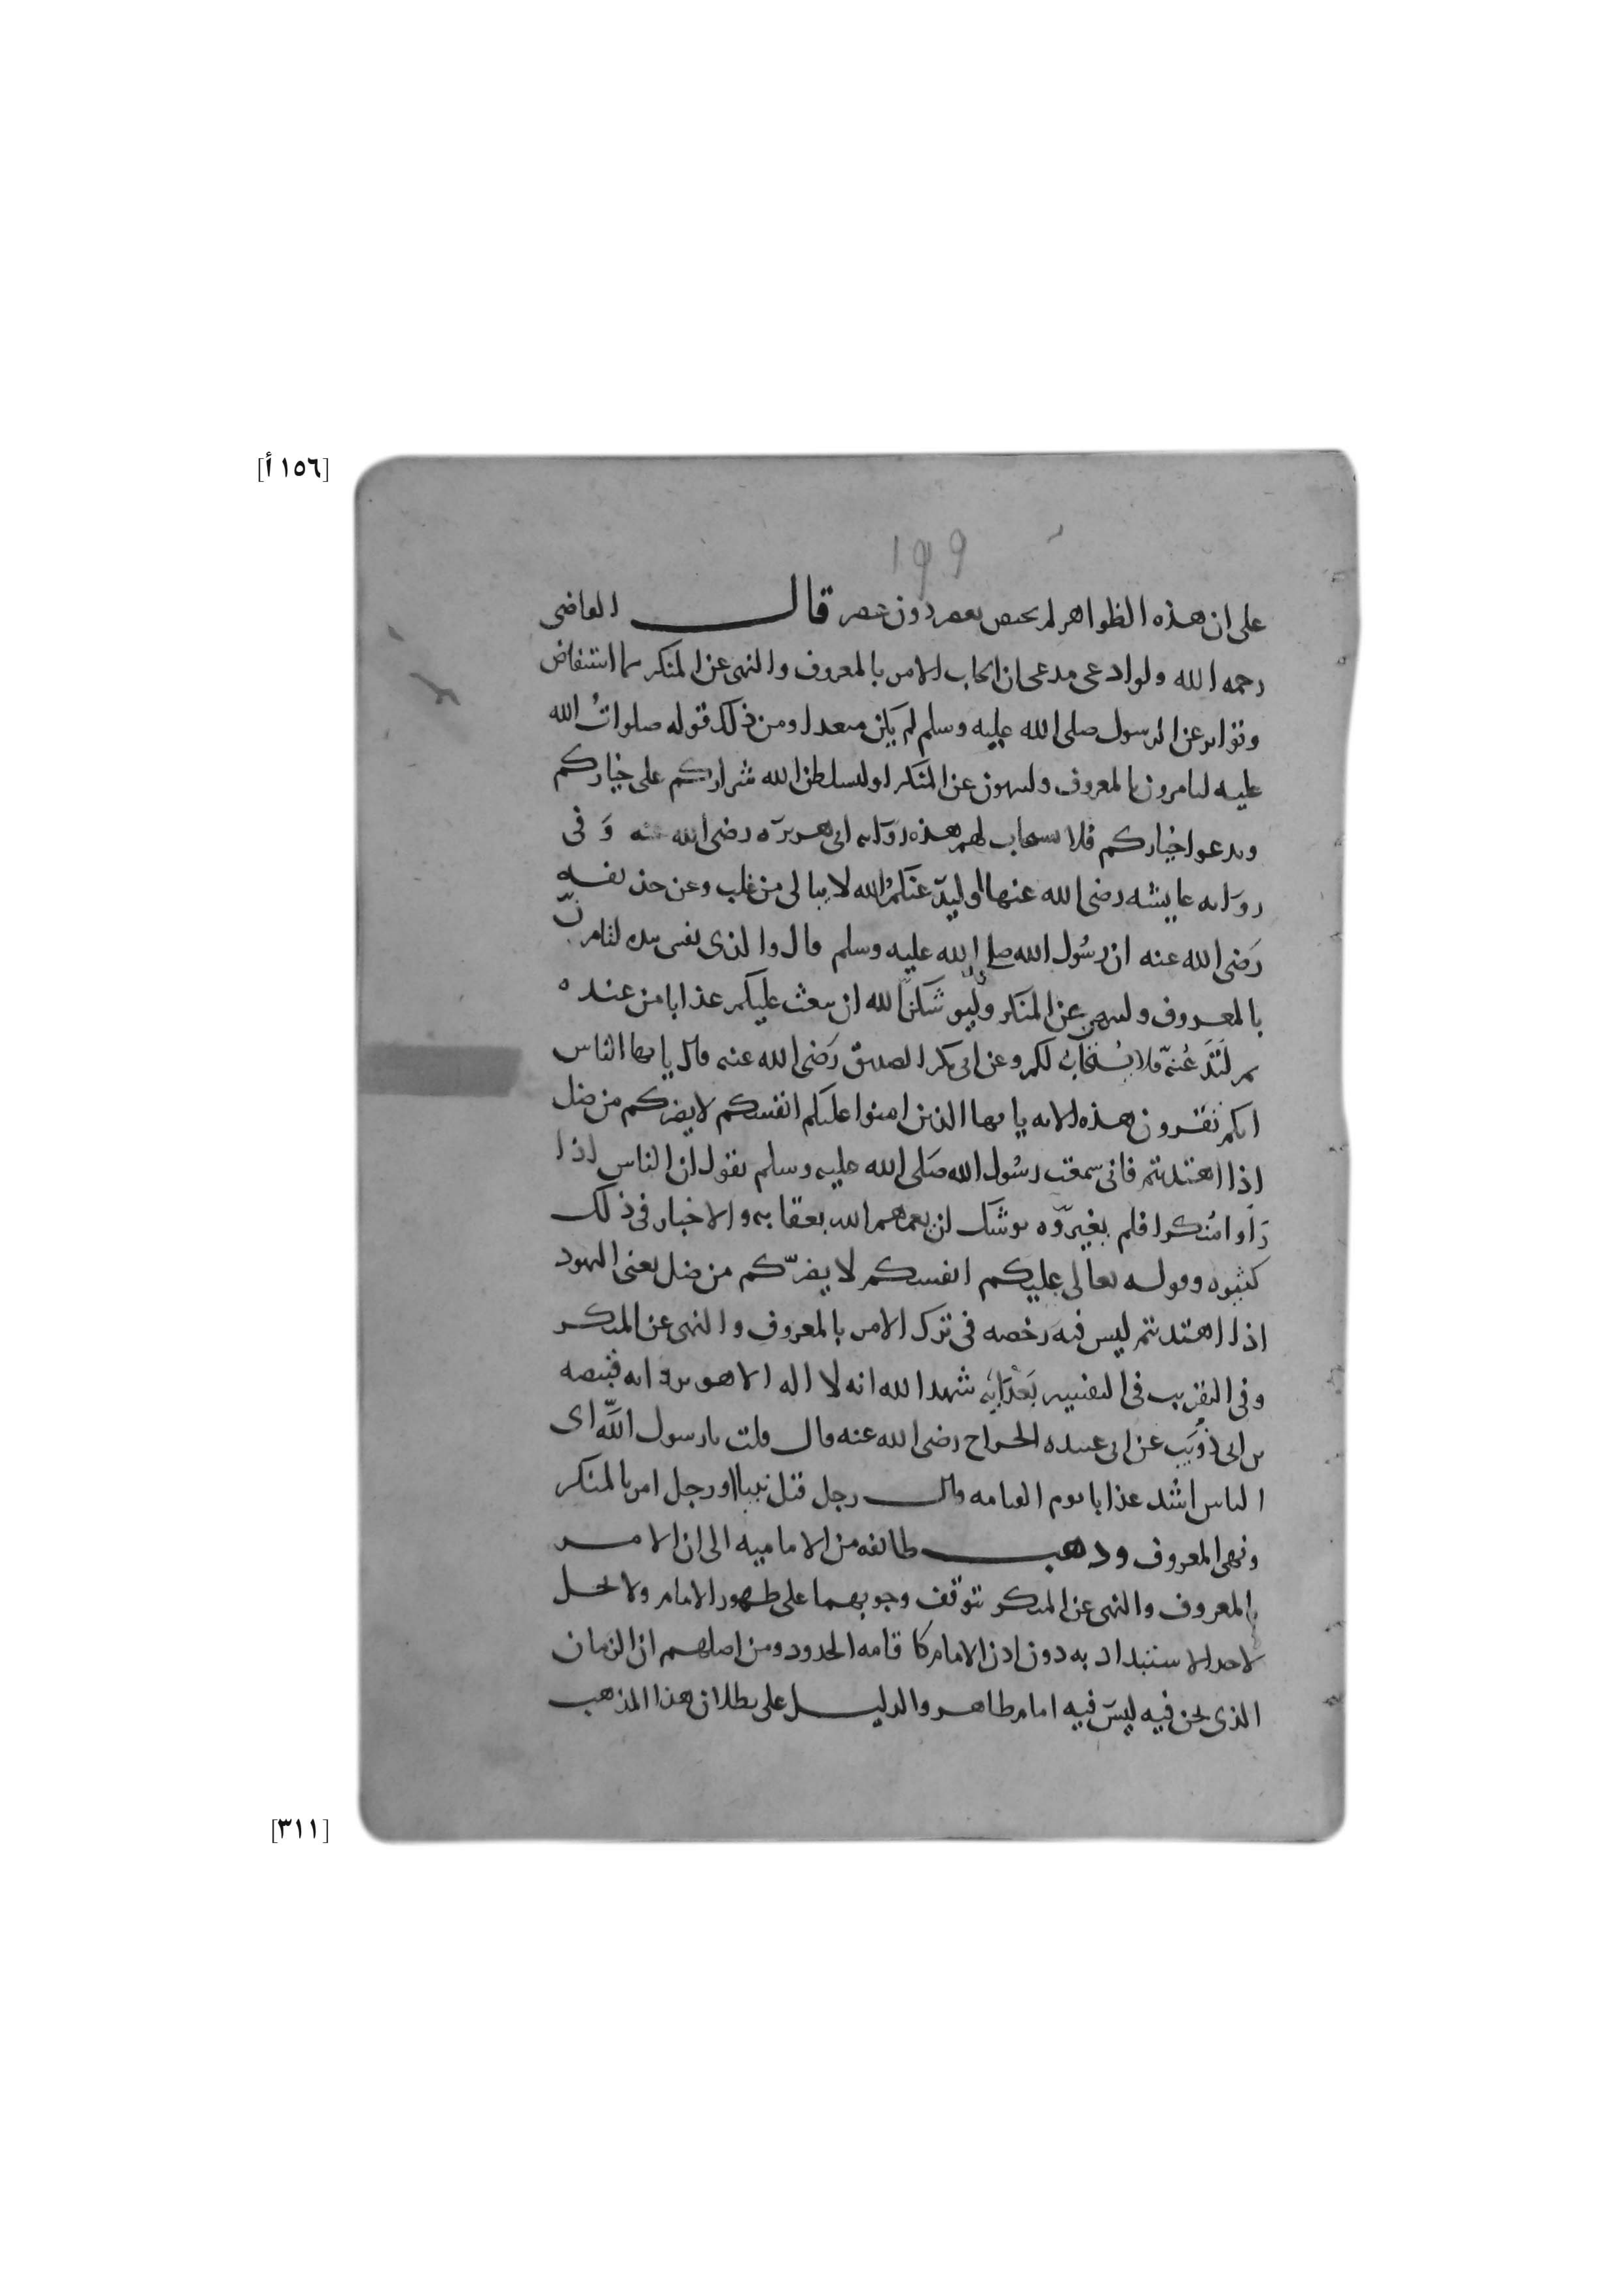 [١٥٦ أ]
199
على ان هذه الظواهر لم يختص بعصر دون عصر قال القاضى
رحمه الله ولو ادعى مدعى ان ايجاب الامر بالمعروف والنهى عن المنكر مما استفاض
وتواتر عن الرسول صلى الله عليه وسلم لم يكن مبعدا ومن ذلك قوله صلواتُ الله
عليه لتامرون بالمعروف ولتنهون عن المنكر او ليسلطن الله شراركم على خياركم
ويدعوا خياركم فلا يستجاب لهم هذه رواية ابى هريرة رضى الله عنه وَفى
رواية عايشه رضى الله عنها او ليدّعنكم الله لا يبالى من غلب وعن حذيفه
رَضى الله عنه ان رسُول الله صلى الله عليه وسلم قال والذى نفسى بيده لتامرنّ
بالمعروف ولتنهن عن المنكر وليوشكنّ الله ان يبعث عليكم عذابا من عنده
ثم لتَدَعُنّه فلا يُستجابُ لكم وعن ابى بكر الصديق رَضى الله عنه قال يا ايها الناس
انكم تقرون هذه الايه يا ايها الذين امنوا عليكم انفسكم لا يضركم من ضل
اذا اهتديتم فانى سمعت رسُول الله صَلى الله عليه وسلم يقول ان الناس اذا
رَاوا مُنكرا فلم يغيرّوه يوشك ان يعمهم الله بعقابه والاخبار فى ذلك
كثيره وقوله تعالى عليكم انفسكم لا يضرّكم من ضل يعنى اليهود
اذا اهتديتم ليس فيه رخصه فى ترك الامر بالمعروف والنهى عن المنكر
وفى التقريب فى التفسير بَعْد ايَه شهد الله انه لا اله الا هو بروايه قبيصه
بن ابى ذُويَب عن ابى عبيده الجراح رضى الله عنه قال قلت يا رسول اللَّه اى
الناس اشد عذابا يوم القيامه قال رجل قتل نبيا او رجل امر بالمنكر
ونهى المعروف وذهب طائفه من الاماميه الى ان الامر
بالمعروف والنهى عن المنكر تتوقف وجوبهما على ظهور الامام ولا يحل
لاحد الاستبداد به دون اذن الامام كاقامه الحدود ومن اصلهم ان الزمان
الذى نحن فيه ليسَ فيه امام ظاهر والدليل على بطلان هذا المذهب
[٣١١]